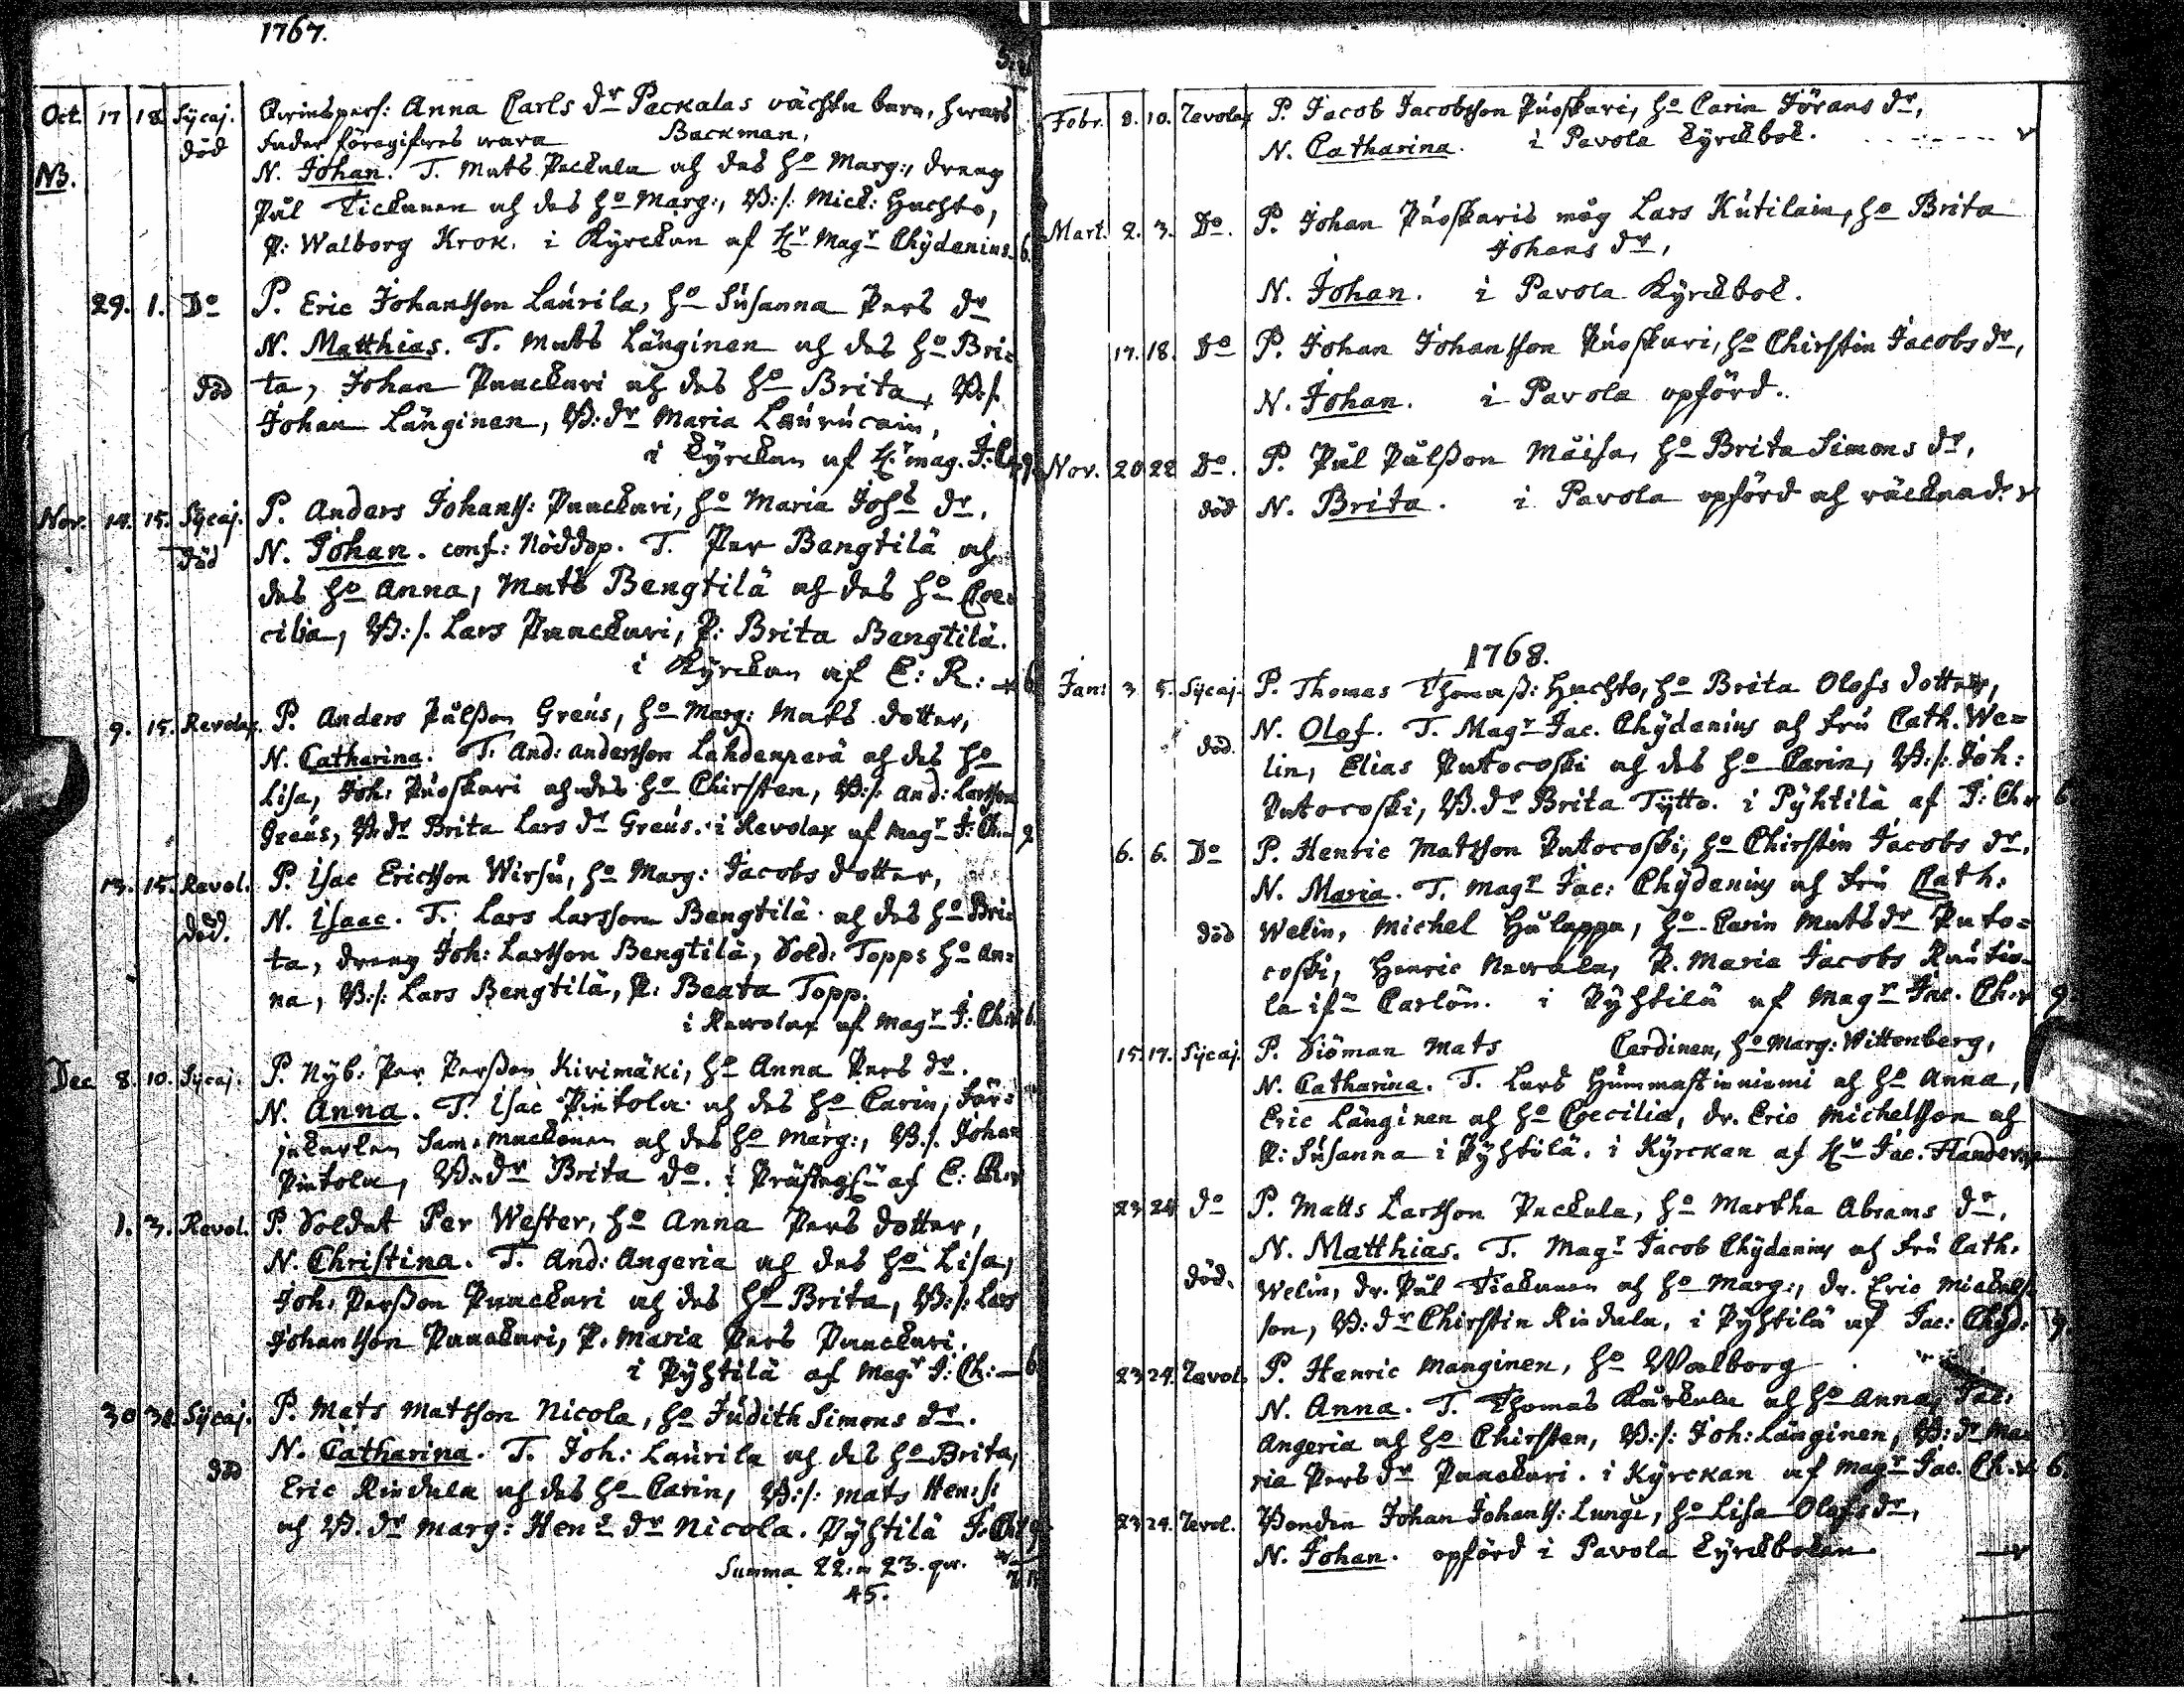 1767.
Oct. 17 18 Sijcaj. Qvinspers: Anna Carls dr Packalas oächta barn, hwars
död fader föregifves wara Backman,
NB. N. Johan. T. Mats Packala och des ho Marg:, dreng
Pål Tickanen och des ho Marg:, B:/: Mick: Huchto,
P: Walborg Krok. i Kyrckan af Hr Magr Chydenius. 6.
29. 1. Do P. Eric Johansson Laurila, ho Susanna Pers dr
N. Matthias. T. Mats Länginen och des ho Bri=
död ta, Johan Paackari och des ho Brita, B:/:
Johan Länginen, B:dr Maria Laurucain,
i Kyrckan af Hr mag. J: Ch
Nov. 14. 15. Sijcaj. P. Anders Johans: Paackari, ho Maria Johs dr.
död N. Johan. conf: Nöddop. T. Per Bengtilä och
des ho Anna, Mats Bengtilä och des ho Coe=
cilia, B:/: Lars Paackari, P: Brita Bengtilä.
i Kyrckan af C: R: 6
9. 15. Revolax P. Anders Pålsson Greus, ho Marg: Mats dotter,
N. Catharina. T. And: andersson Lahdenperä och des ho
Lisa, Joh: Puoskari och des ho Chirsten, B:/: And: Larsson
Greus, B:dr Brita Lars dr Greus. i Revolax af Magr J: Ch. 9
13. 15. Revol. P. Isac Ericsson Wirsu, ho Marg: Jacobs dotter,
död. N. Isaac. T. Lars Larsson Bengtilä och des ho Bri=
ta, dreng Joh: Larsson Bengtilä, Sold: Topps ho An=
na, B:/: Lars Bengtilä, P: Beata Topp.
i Revolax af Magr J: Ch: 6.
Dec 8. 10. Sijcaj: P. Nyb: Per Persson Kivimäki, ho Anna Pers dr.
N. Anna. T. Isac Pietola och des ho Carin, Fär=
jekarlen Sam: Mackonen och des ho Marg:, B:/: Johan
Pietola, B:dr Brita do. i Prästeg:n af C: R:
1. 3. Revol. P. Soldat Per Wester, ho Anna Pers dotter,
N. Christina. T. And: Angeria och des ho Lisa,
Joh: Persson Paackari och des ho Brita, B:/: Lars
Johansson Paackari, P. Maria Pers Paackari.
i Pyhtilä af Magr J: Ch: 6
30 31. Sijcaj. P. Mats Matsson Nicola, ho Judith Simons dr.
N. Catharina. T. Joh: Laurila och des ho Brita,
död Eric Rindala och des ho Carin, B:/: Mats Hen:/:
och B. dr Marg: Hens dr Nicola. Pyhtilä J: Ch: 9
Summa 22. m 23. qv.
45.
Febr. 8. 10. Revolax P. Jacob Jacobsson Puoskari, ho Carin Jörans dr,
N. Catharina. i Pavola Kyrckbok.
Mart. 2. 3. Do. P. Johan Puoskaris måg Lars Kutilain, ho Brita
Johans dr,
N. Johan. i Pavola Kyrckbok.
17. 18. Do P. Johan Johansson Puoskari, ho Chirstin Jacobs dr,
N. Johan. i Pavola opförd.
Nov. 20 22 Do. P. Pål Pålsson Mäisa, ho Brita Simons dr,
död N. Brita. i Pavola opförd och räcknad.
1768.
Jan: 3 5. Sijcaj. P. Thomas Thomass: Huchto, ho Brita Olofs dotter,
N. Olof. T. Magr Jac. Chydenius och fru Cath. We=
död. lin, Elias Putocoski och des ho Carin, B:/: Joh:
Putocoski, B.dr Brita Tytto. i Pyhtilä af J: Ch. 6
6. 6. Do P. Henric Matsson Putocoski, ho Chirstin Jacobs dr.
N. Maria. T. Magr Jac: Chydenius och fru Cath:
död Welin, Michel Hulappa, ho Carin Mats dr Puto=
coski, Henric Newala, P. Maria Jacobs Rautio=
la ifn Carlön. i Pyhtilä af Magr Jac. Ch. 9
15. 17. Sijcaj. P. Siöman Mats Cardinen, ho Marg: Wittenberg,
N. Catharina. T. Lars Hummastinniemi och ho Anna,
Eric Länginen och ho Coecilia, dr. Eric Michelsson och
P: Susanna i Pyhtilä. i Kyrckan af Hr Jac. Flander
23 24 do P. Matts Larsson Packala, ho Martha Abrams dr.
N. Matthias. T. Magr Jacob Chydenius och fru Cath.
död. Welin, dr. Pål Tickanen och ho Marg:, dr. Eric Mickels
son, B:dr Chirstin Rindala, i Pyhtilä af Jac: Chyd: 9.
23 24. Revol. P. Henric Manginen, ho Walborg
N. Anna. T. Thomas Karkula och ho Anna, Jac:
Angeria och ho Chirsten, B:/: Joh: Länginen, B:dr Ma=
ria Pers dr Paackari. i Kyrckan af Magr Jac. Ch. 6.
23 24. Revol. Bonden Johan Johans: Lungi, ho Lisa Olofs dr,
N. Johan. opförd i Pavola Kyrckbokan